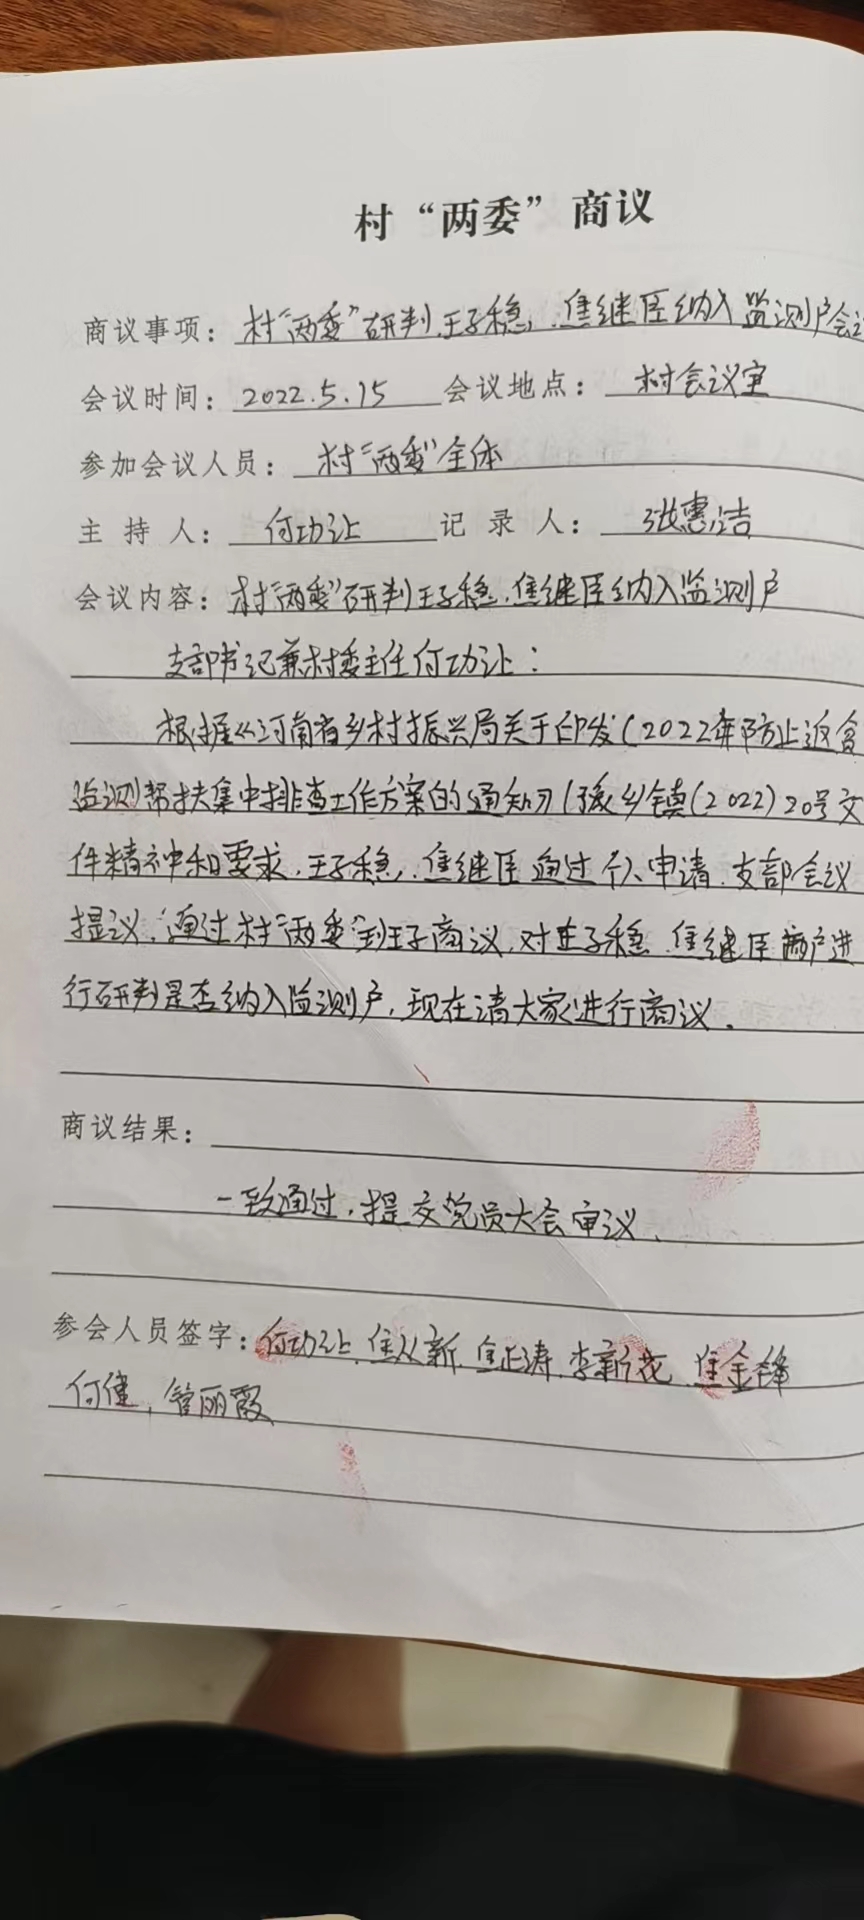 村“两委”商议
商议事项：村“两委”研判王子稳、焦继臣纳入监测户会
会议时间：2022.5.15 会议地点：村会议室
参加会议人员：村“两委”全体
主持人：何功让 记录人：张惠洁
会议内容：村“两委”研判王子稳、焦继臣纳入监测户
支部书记兼村委主任何功让：
根据《河南省乡村振兴局关于印发（2022年防止返贫
监测帮扶集中排查工作方案的通知》（豫乡镇（2022）20号文
件精神和要求，王子稳、焦继臣通过个人申请，支部会议
提议，通过村“两委”班子商议，对王子稳、焦继臣两户进
行研判是否纳入监测户，现在请大家进行商议。
商议结果：
一致通过，提交党员大会审议。
参会人员签字：何功让、焦从新、焦正涛、李新花、焦金锋
何健，管丽霞